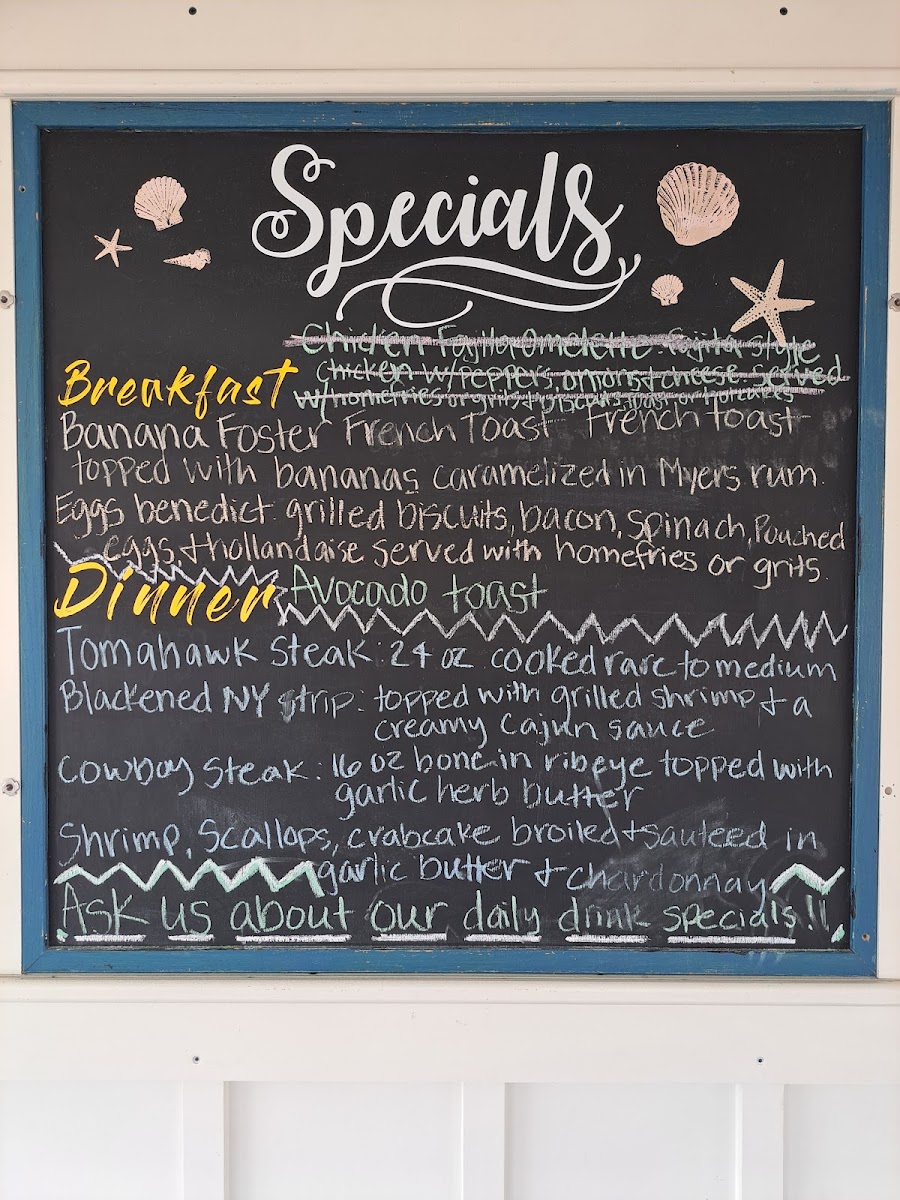 Specials
Chicken Fajita Omelette: fajita style
Chicken w/ peppers, onions + cheese served
w/ homefries or grits + biscuit, toast or pancakes
Breakfast
Banana Foster French Toast French toast
topped with bananas caramelized in Myers rum.
Eggs benedict: grilled biscuits, bacon, spinach, Pouched
eggs + hollandaise served with homefries or grits.
Dinner
Avocado toast
Tomahawk steak: 24 oz cooked rare to medium
Blackened NY strip: topped with grilled shrimp + a
creamy cajun sauce
Cowboy steak: 16 oz bone in ribeye topped with
garlic herb butter
Shrimp, Scallops, crabcake broiled + sauteed in
garlic butter + chardonnay
Ask us about our daily drink specials!!